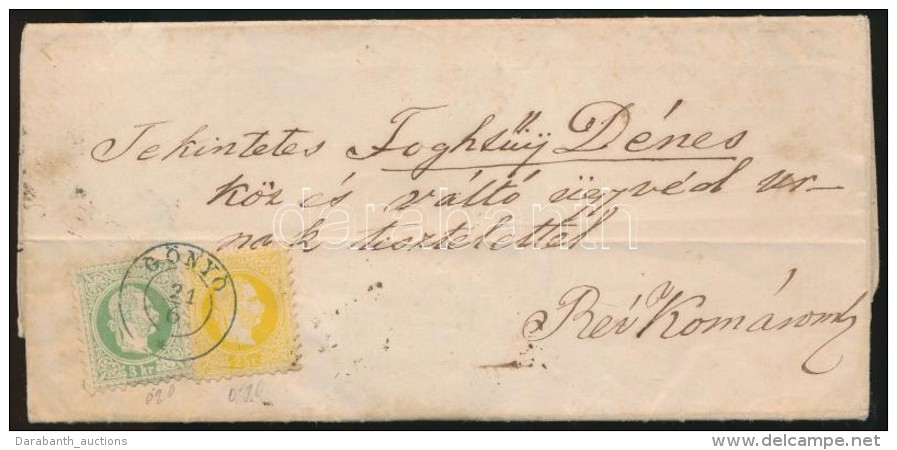 Tekintetes Foghtüÿ Dénes
köz és váltó ügyvéd ur-
nak tisztelettel
Rév Komárom
GÖNYÖ
21
6
3 kr
2 kr
darabanth
Darabanth_auctions
www.delcampe.net